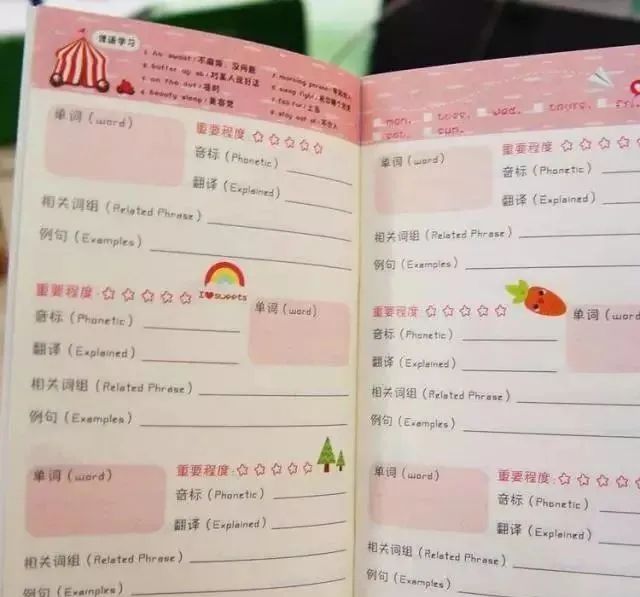 俚语学习
1. no sweat: 不麻烦, 没问题
2. butter up sb: 对某人说好话
3. on the dot: 准时
4. beauty sleep: 美容觉
5. morning person:
8. stay out of:
单词 (word)
重要程度:
音标 (Phonetic)
翻译 (Explained)
相关词组 (Related Phrase)
例句 (Examples)
重要程度:
I sweets
单词 (word)
音标 (Phonetic)
翻译 (Explained)
相关词组 (Related Phrase)
例句 (Examples)
单词 (word)
重要程度:
音标 (Phonetic)
翻译 (Explained)
相关词组 (Related Phrase)
例句 (Examples)
mon. tues. wed. thurs. fri.
sat. sun.
单词 (word)
重要程度:
音标 (Phonetic)
翻译 (Explained)
相关词组 (Related Phrase)
例句 (Examples)
重要程度:
单词 (word)
音标 (Phonetic)
翻译 (Explained)
相关词组 (Related Phrase)
例句 (Examples)
单词 (word)
重要程度:
音标 (Phonetic)
翻译 (Explained)
相关词组 (Related Phrase)
例句 (Examples)